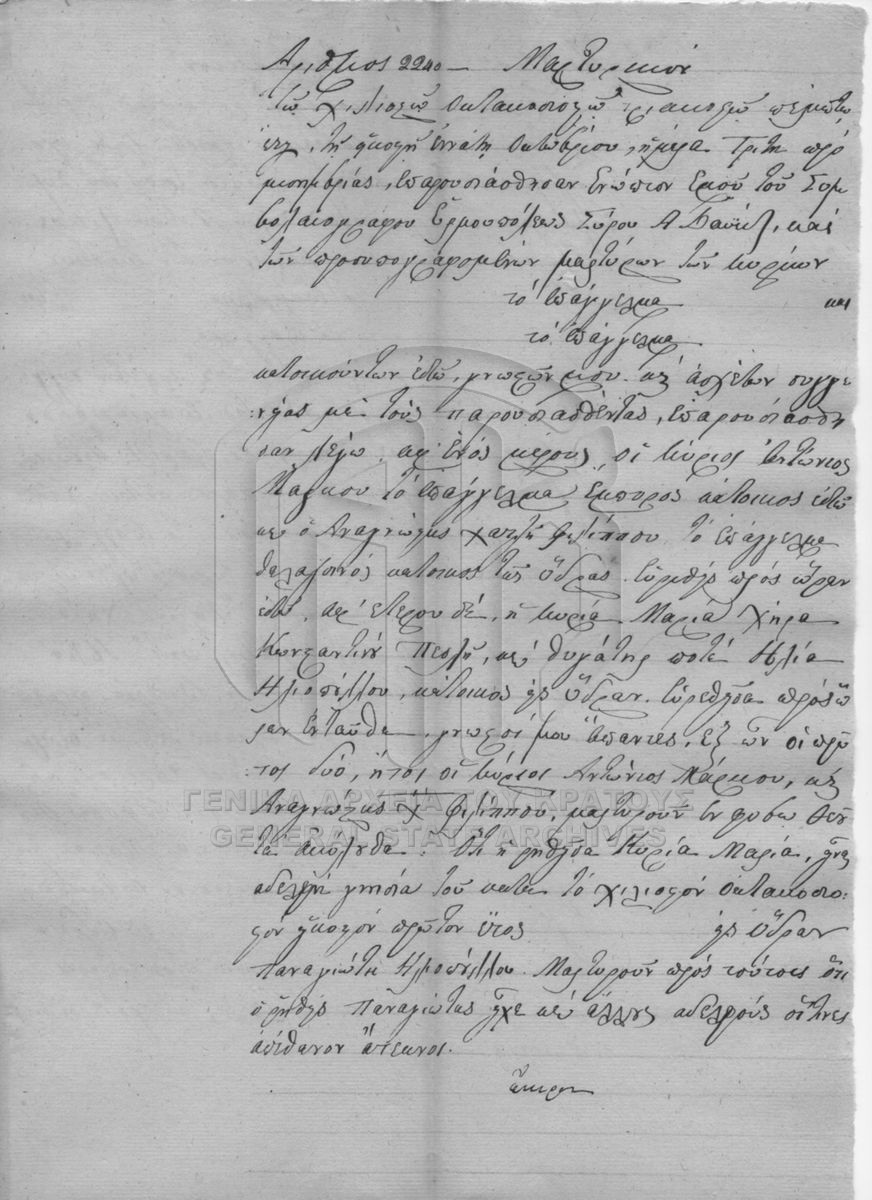 Αριθμος 2240 — Μαρτυρικόν
τῶ χιλιοστῶ οκτακοσιοστῶ τριακοστῶ πέμπτω
έτει, τῇ εἰκοστῇ ἐννάτῃ Οκτωβρίου, ἡμέρα Τρίτη πρό
μεσημβρίας, ἐπαρουσιάσθησαν ἐνώπιον ἐμοῦ τοῦ Συμ
βολαιογράφου Ἑρμουπόλεως Σύρου Α καί
τῶν προσυπογραφομένων μαρτύρων τῶν κυρίων
τό ἐπάγγελμα και
τό ἐπάγγελμα
κατοικούντων ἐδῶ, γνωστῶν μου καί ἀσχέτων συγγε
νείας μέ τούς παρουσιασθέντας, ἐπαρουσιάσθη
σαν λέγω ἀφ' ἑνός μέρους οἱ κύριος Ἀντώνιος
Μάρκου τό ἐπάγγελμα ἔμπορος κάτοικος ἐδῶ
καί ὁ Αναγνώστης χατζῆ Φιλίππου τό ἐπάγγελμα
θαλασσινός κάτοικος τῆς Ὕδρας εὑρεθείς πρός ὥραν
ἐδῶ, ἀφ' ἑτέρου δέ, ἡ κυρία Μαρία χήρα
Κωνσταντίνου καί θυγάτηρ ποτέ Ηλία
Ηλιοπούλου, κάτοικος εἰς Ὕδραν εὑρεθεῖσα πρός ὥ
ραν ἐνταῦθα, γνωστοί μου ἅπαντες, ἐξ ὧν οἱ πρῶ
τοι δύο, ἤτοι οἱ κύριοι Αντώνιος Μάρκου, καί
Αναγνώστης Χ Φιλίππου, μαρτυροῦν ἐν φόβω Θεοῦ
τά ἀκόλουθα: Ὅτι ἡ ρηθεῖσα Κυρία Μαρία, εἶναι
ἀδελφή γνησία τοῦ κατά τό χιλιοστόν ὀκτακοσιο
στόν εἰκοστόν πρῶτον ἔτος εἰς Ὕδραν
Παναγιώτη Ηλιοπούλου. Μαρτυροῦν πρός τούτοις ὅτι
ὁ ρηθείς Παναγιώτης εἶχε καί ἄλλους ἀδελφούς οἵτινες
ἀπέθανον ἄτεκνοι.
ΓΕΝΙΚΑ ΑΡΧΕΙΑ ΤΟΥ ΚΡΑΤΟΥΣ
GENERAL STATE ARCHIVES